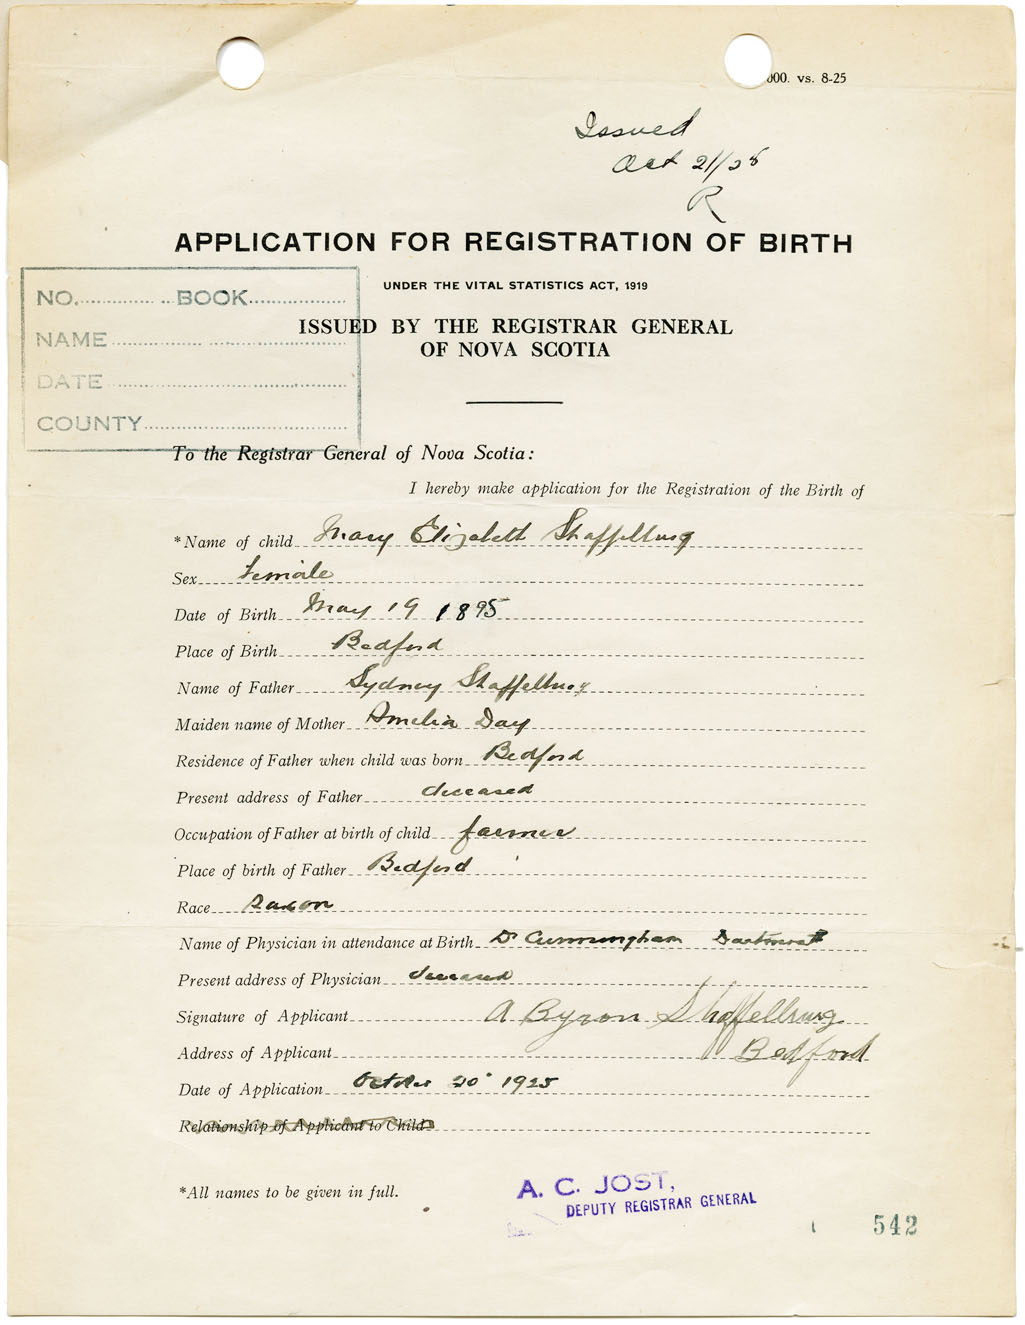 000. vs. 8-25
Issued
Oct 21/25
R
APPLICATION FOR REGISTRATION OF BIRTH
UNDER THE VITAL STATISTICS ACT, 1919
ISSUED BY THE REGISTRAR GENERAL
OF NOVA SCOTIA
NO. BOOK
NAME
DATE
COUNTY
To the Registrar General of Nova Scotia:
I hereby make application for the Registration of the Birth of
*Name of child Mary Elizabeth Shaffelburg
Sex Female
Date of Birth May 19 1895
Place of Birth Bedford
Name of Father Sydney Shaffelburg
Maiden name of Mother Amelia Day
Residence of Father when child was born Bedford
Present address of Father deceased
Occupation of Father at birth of child farmer
Place of birth of Father Bedford
Race Saxon
Name of Physician in attendance at Birth Dr Cunningham Dartmouth
Present address of Physician deceased
Signature of Applicant A Byron Shaffelburg
Address of Applicant Bedford
Date of Application October 20 1925
Relationship of Applicant to Child
*All names to be given in full.
A. C. JOST,
DEPUTY REGISTRAR GENERAL
542